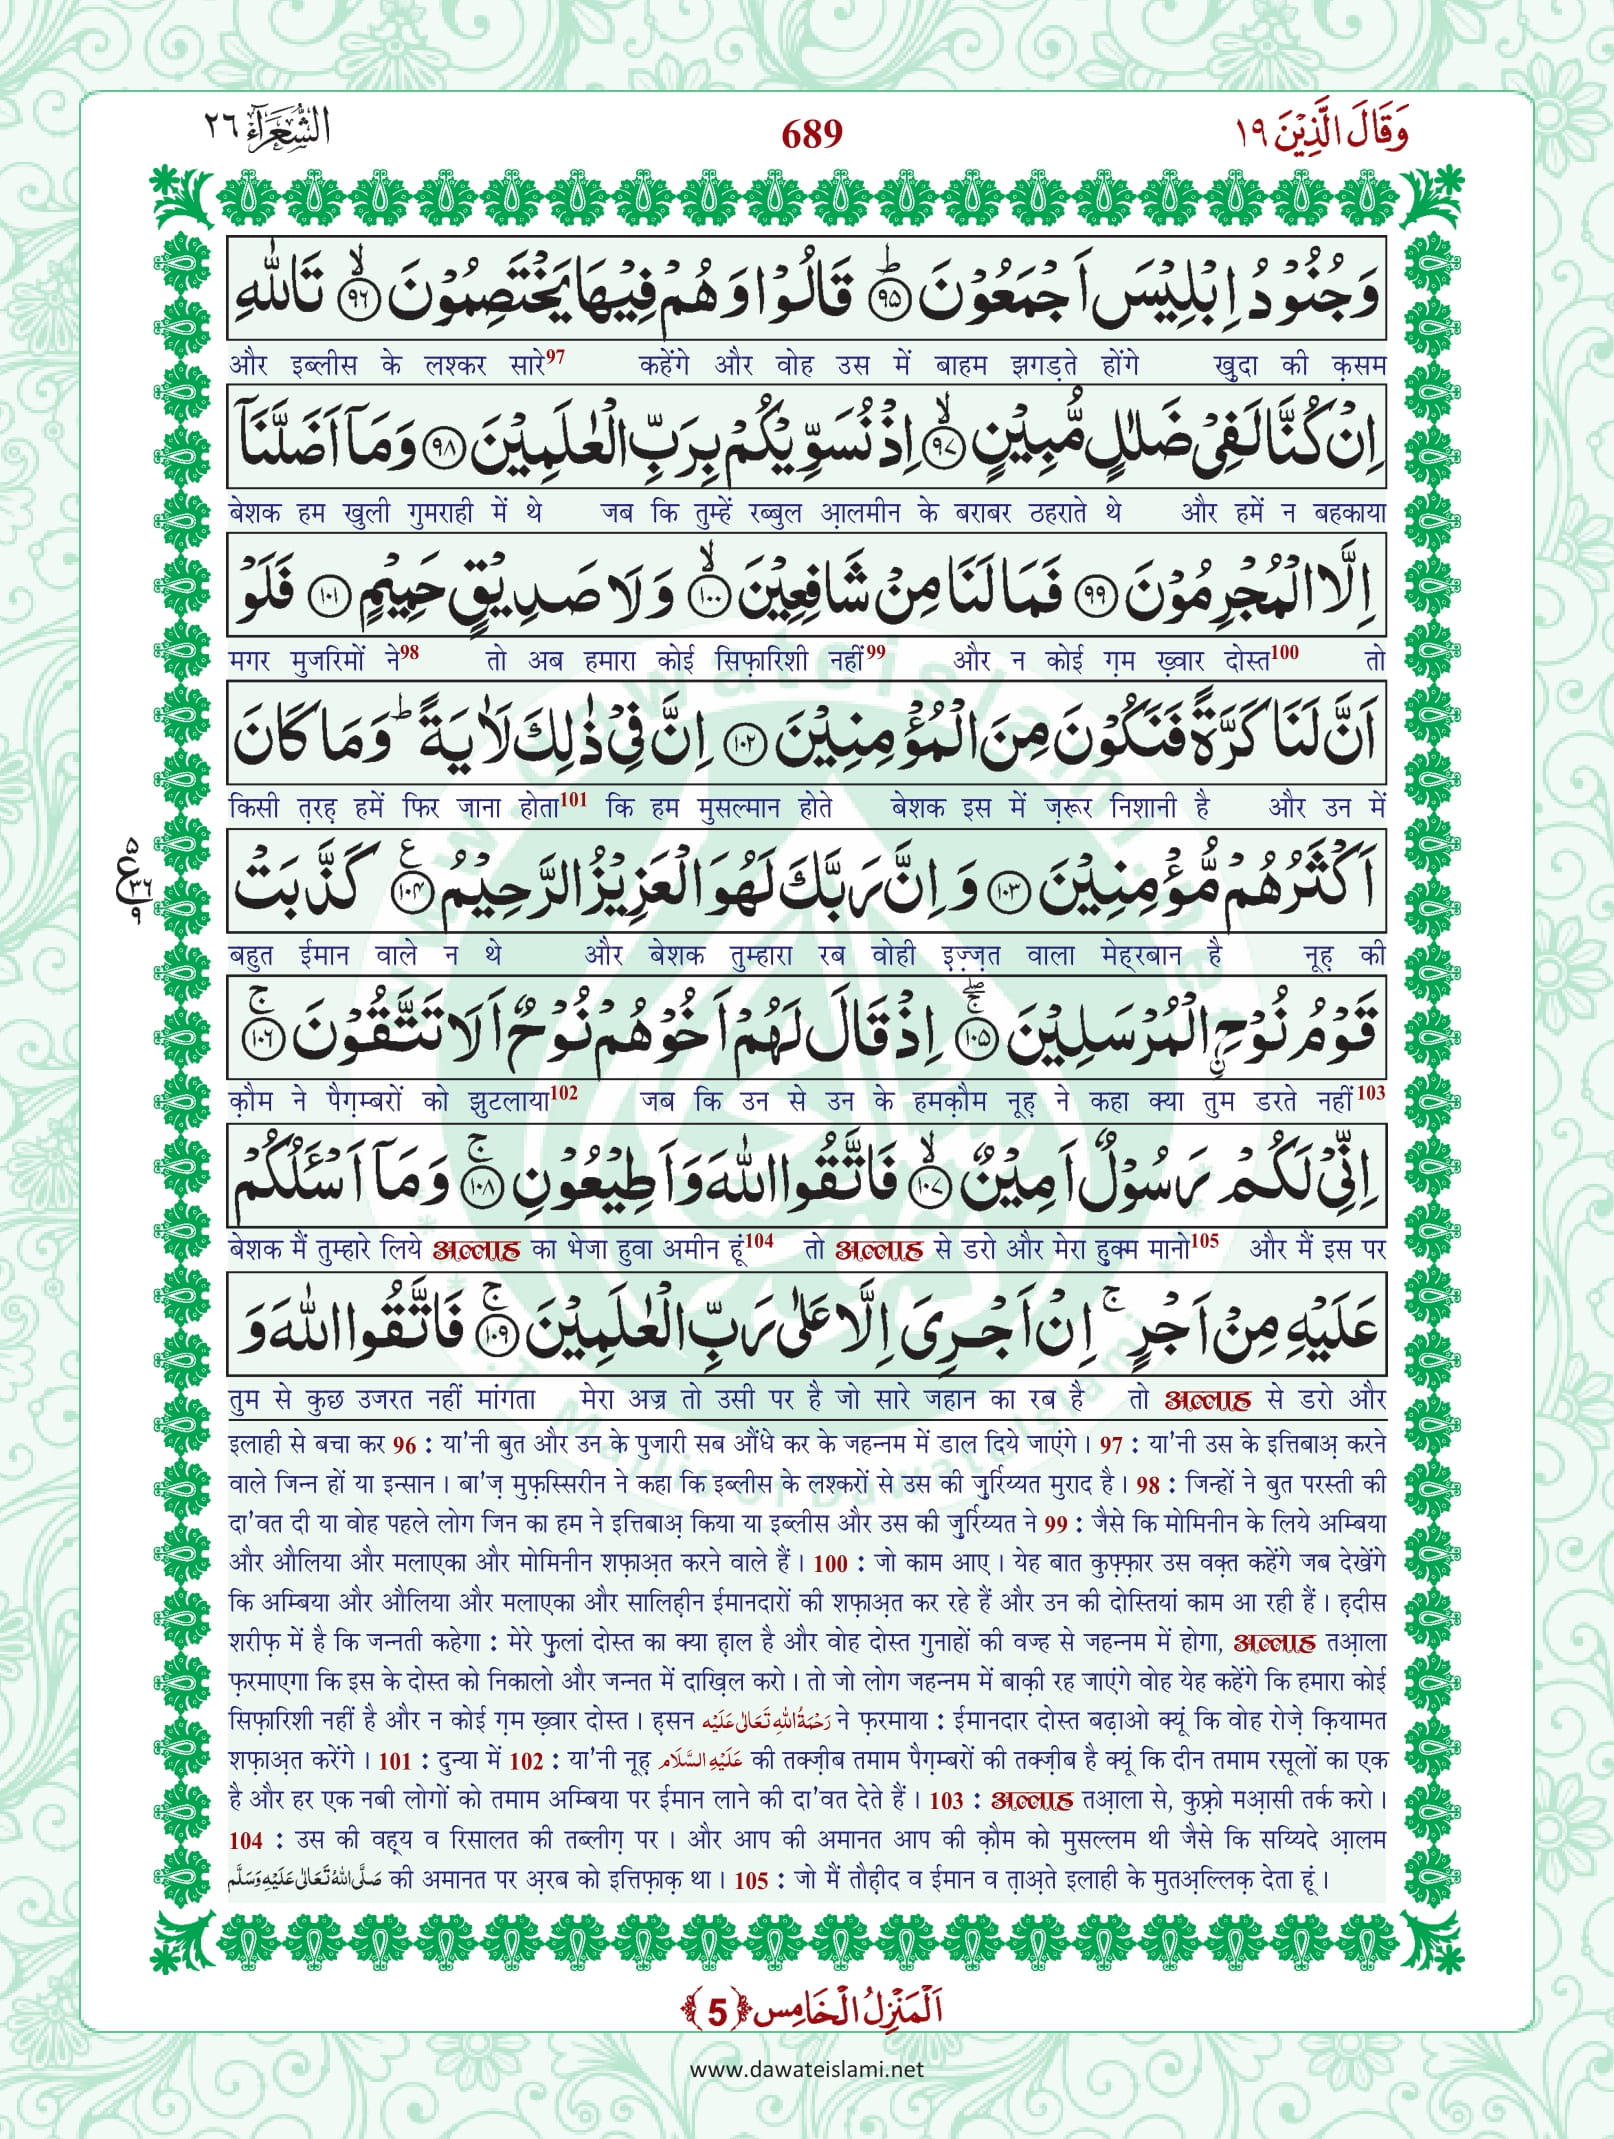 وَقَالَ الَّذِيْنَ ١٩
689
الشُّعَرَآء ٢٦
وَجُنُوْدُ اِبْلِيْسَ اَجْمَعُوْنَ ؕ﴿٩٥﴾ قَالُوْا وَهُمْ فِيْهَا يَخْتَصِمُوْنَ ۙ﴿٩٦﴾ تَاللّٰهِ
और इब्लीस के लश्कर सारे97 कहेंगे और वोह उस में बाहम झगड़ते होंगे खुदा की क़सम
اِنْ كُنَّا لَفِيْ ضَلٰلٍ مُّبِيْنٍ ۙ﴿٩٧﴾ اِذْ نُسَوِّيْكُمْ بِرَبِّ الْعٰلَمِيْنَ ﴿٩٨﴾ وَمَاۤ اَضَلَّنَاۤ
बेशक हम खुली गुमराही में थे जब कि तुम्हें रब्बुल आ़लमीन के बराबर ठहराते थे और हमें न बहकाया
اِلَّا الْمُجْرِمُوْنَ ﴿٩٩﴾ فَمَا لَنَا مِنْ شَافِعِيْنَ ۙ﴿١٠٠﴾ وَلَا صَدِيْقٍ حَمِيْمٍ ﴿١٠١﴾ فَلَوْ
मगर मुजरिमों ने98 तो अब हमारा कोई सिफ़ारिशी नहीं99 और न कोई ग़म ख़्वार दोस्त100 तो
اَنَّ لَنَا كَرَّةً فَنَكُوْنَ مِنَ الْمُؤْمِنِيْنَ ﴿١٠٢﴾ اِنَّ فِيْ ذٰلِكَ لَاٰيَةً ؕ وَمَا كَانَ
किसी त़रह़ हमें फिर जाना होता101 कि हम मुसल्मान होते बेशक इस में ज़रूर निशानी है और उन में
اَكْثَرُهُمْ مُّؤْمِنِيْنَ ﴿١٠٣﴾ وَاِنَّ رَبَّكَ لَهُوَ الْعَزِيْزُ الرَّحِيْمُ ﴿١٠٤﴾ كَذَّبَتْ
٥ ع ٣٦ ٩
बहुत ईमान वाले न थे और बेशक तुम्हारा रब वोही इ़ज़्ज़त वाला मेह्रबान है नूह़ की
قَوْمُ نُوْحِ ِۨالْمُرْسَلِيْنَ ﴿١٠٥﴾ اِذْ قَالَ لَهُمْ اَخُوْهُمْ نُوْحٌ اَلَا تَتَّقُوْنَ ۚ﴿١٠٦﴾
क़ौम ने पैग़म्बरों को झुटलाया102 जब कि उन से उन के हमक़ौम नूह़ ने कहा क्या तुम डरते नहीं103
اِنِّيْ لَكُمْ رَسُوْلٌ اَمِيْنٌ ۙ﴿١٠٧﴾ فَاتَّقُوا اللّٰهَ وَاَطِيْعُوْنِ ۚ﴿١٠٨﴾ وَمَاۤ اَسْـَٔلُكُمْ
बेशक मैं तुम्हारे लिये अल्लाह का भेजा हुवा अमीन हूं104 तो अल्लाह से डरो और मेरा हुक्म मानो105 और मैं इस पर
عَلَيْهِ مِنْ اَجْرٍ ۚ اِنْ اَجْرِيَ اِلَّا عَلٰى رَبِّ الْعٰلَمِيْنَ ۚ﴿١٠٩﴾ فَاتَّقُوا اللّٰهَ وَ
तुम से कुछ उजरत नहीं मांगता मेरा अज्र तो उसी पर है जो सारे जहान का रब है तो अल्लाह से डरो और
इलाही से बचा कर 96 : या'नी बुत और उन के पुजारी सब औंधे कर के जहन्नम में डाल दिये जाएंगे। 97 : या'नी उस के इत्तिबाअ़ करने
वाले जिन्न हों या इन्सान। बा'ज़ मुफ़स्सिरीन ने कहा कि इब्लीस के लश्करों से उस की जुर्रिय्यत मुराद है। 98 : जिन्हों ने बुत परस्ती की
दा'वत दी या वोह पहले लोग जिन का हम ने इत्तिबाअ़ किया या इब्लीस और उस की जुर्रिय्यत ने 99 : जैसे कि मोमिनीन के लिये अम्बिया
और औलिया और मलाएका और मोमिनीन शफ़ाअ़त करने वाले हैं। 100 : जो काम आए। येह बात कुफ़्फ़ार उस वक़्त कहेंगे जब देखेंगे
कि अम्बिया और औलिया और मलाएका और सालिह़ीन ईमानदारों की शफ़ाअ़त कर रहे हैं और उन की दोस्तियां काम आ रही हैं। ह़दीस
शरीफ़ में है कि जन्नती कहेगा : मेरे फुलां दोस्त का क्या ह़ाल है और वोह दोस्त गुनाहों की वज्ह से जहन्नम में होगा, अल्लाह तआ़ला
फ़रमाएगा कि इस के दोस्त को निकालो और जन्नत में दाख़िल करो। तो जो लोग जहन्नम में बाक़ी रह जाएंगे वोह येह कहेंगे कि हमारा कोई
सिफ़ारिशी नहीं है और न कोई ग़म ख़्वार दोस्त। ह़सन رَحْمَةُ اللّٰهِ تَعَالٰى عَلَيْه ने फ़रमाया : ईमानदार दोस्त बढ़ाओ क्यूं कि वोह रोज़े क़ियामत
शफ़ाअ़त करेंगे। 101 : दुन्या में 102 : या'नी नूह़ عَلَيْهِ السَّلَام की तक्ज़ीब तमाम पैग़म्बरों की तक्ज़ीब है क्यूं कि दीन तमाम रसूलों का एक
है और हर एक नबी लोगों को तमाम अम्बिया पर ईमान लाने की दा'वत देते हैं। 103 : अल्लाह तआ़ला से, कुफ़्रो मआ़सी तर्क करो।
104 : उस की वह़्य व रिसालत की तब्लीग़ पर। और आप की अमानत आप की क़ौम को मुसल्लम थी जैसे कि सय्यिदे आ़लम
صَلَّى اللّٰهُ تَعَالٰى عَلَيْهِ وَسَلَّم की अमानत पर अ़रब को इत्तिफ़ाक़ था। 105 : जो मैं तौह़ीद व ईमान व त़ाअ़ते इलाही के मुतअ़ल्लिक़ देता हूं।
اَلْمَنْزِلُ الْخَامِس ﴿5﴾
www.dawateislami.net